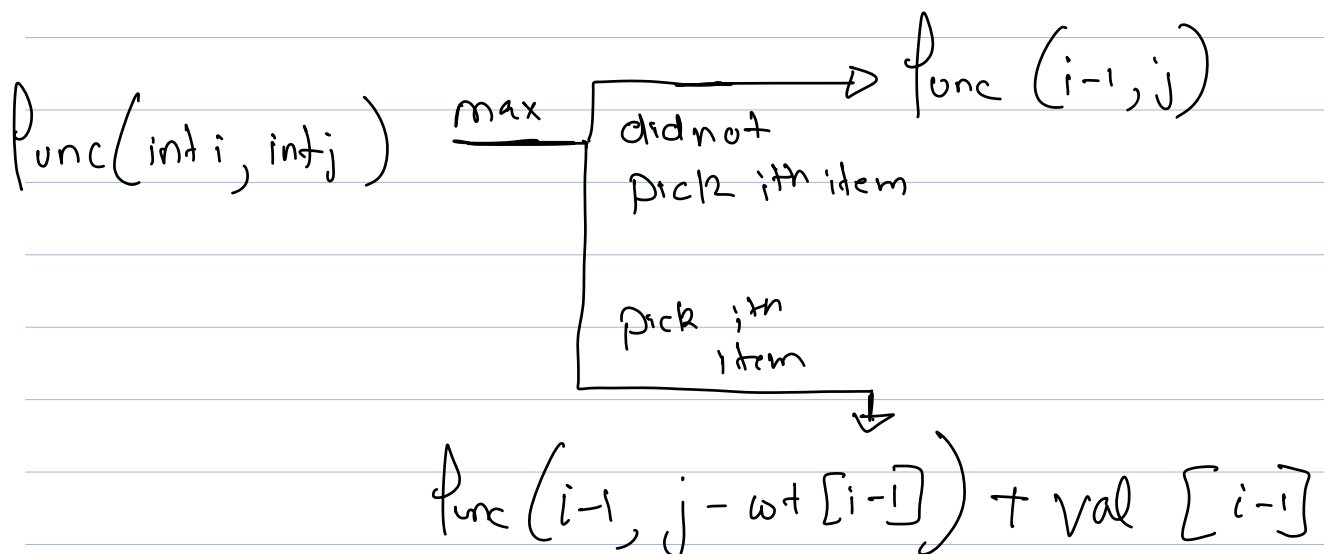 func(int i, int j) max func (i-1, j)
did not
pick ith item
pick ith
item
func(i-1, j - wt [i-1]) + val [i-1]